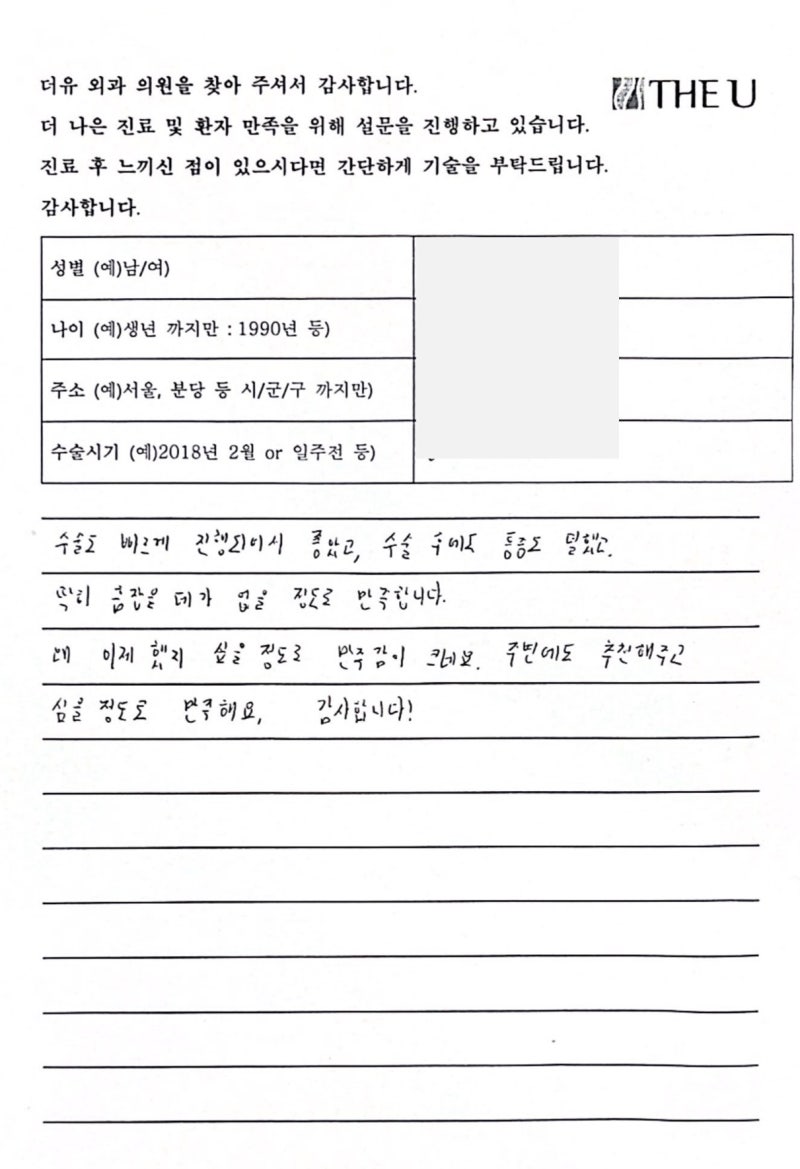 더유 외과 의원을 찾아 주셔서 감사합니다.
THE U
더 나은 진료 및 환자 만족을 위해 설문을 진행하고 있습니다.
진료 후 느끼신 점이 있으시다면 간단하게 기술을 부탁드립니다.
감사합니다.
성별 (예)남/여)
나이 (예)생년 까지만 : 1990년 등)
주소 (예)서울, 분당 등 시/군/구 까지만)
수술시기 (예)2018년 2월 or 일주전 등)
수술도 빠르게 진행되어서 좋았고, 수술 후에도 통증도 덜했고.
딱히 흠잡을 데가 없을 정도로 만족합니다.
왜 이제 했지 싶을 정도로 만족감이 크네요. 주변에도 추천해주고
싶을 정도로 만족해요, 감사합니다!